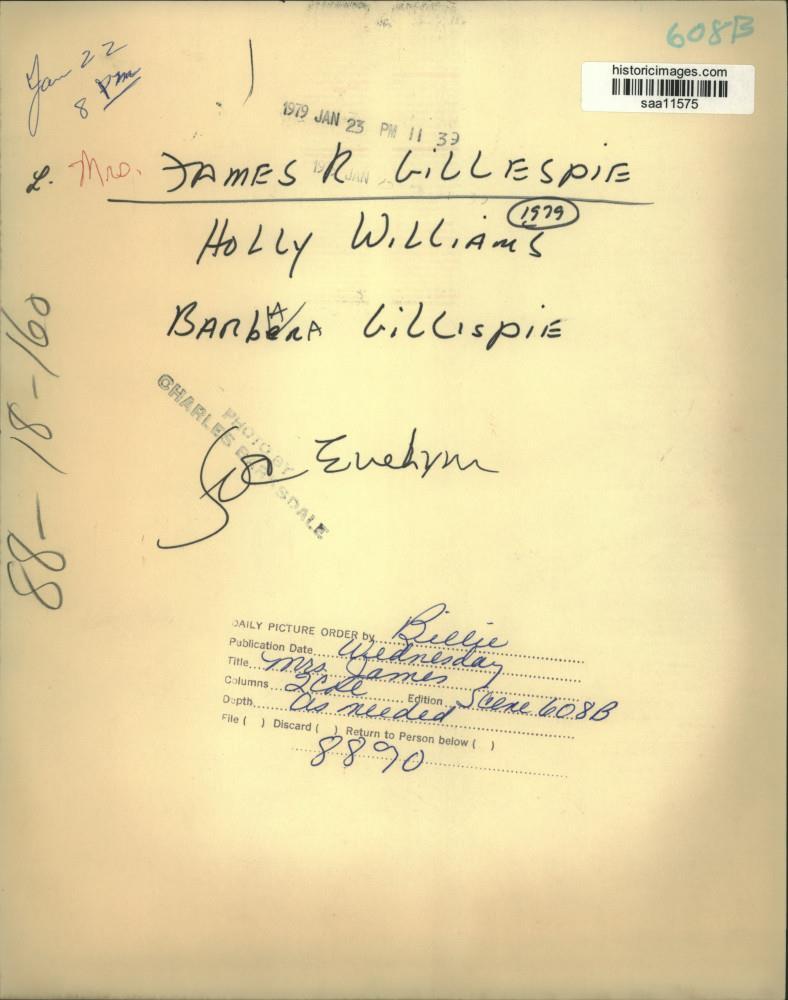 608B
historicimages.com
saa11575
Jan 22
8 pm
1979 JAN 23 PM 11 39
L. Mrs. JAMES R GILLESPIE
1979
HOLLY WILLIAMS
BARbARA GILLISPIE
88-18-160
PHOTO BY
CHARLES BARKSDALE
DAILY PICTURE ORDER by Billie
Publication Date Wednesday
Title Mrs. James
Columns 2 Col Edition Scene 608B
Depth as needed
File ( ) Discard ( ) Return to Person below ( )
8890